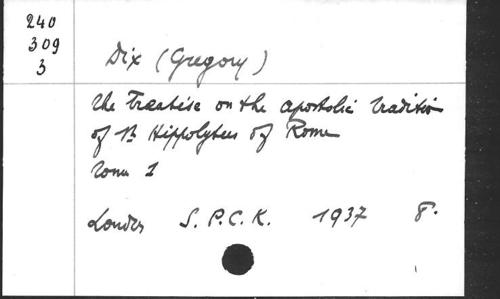 240
309
3
Dix (Gregory)
The Treatise on the apostolic tradition
of St Hippolytus of Rome
Tome 1
Londres S. P. C. K. 1937 8°.